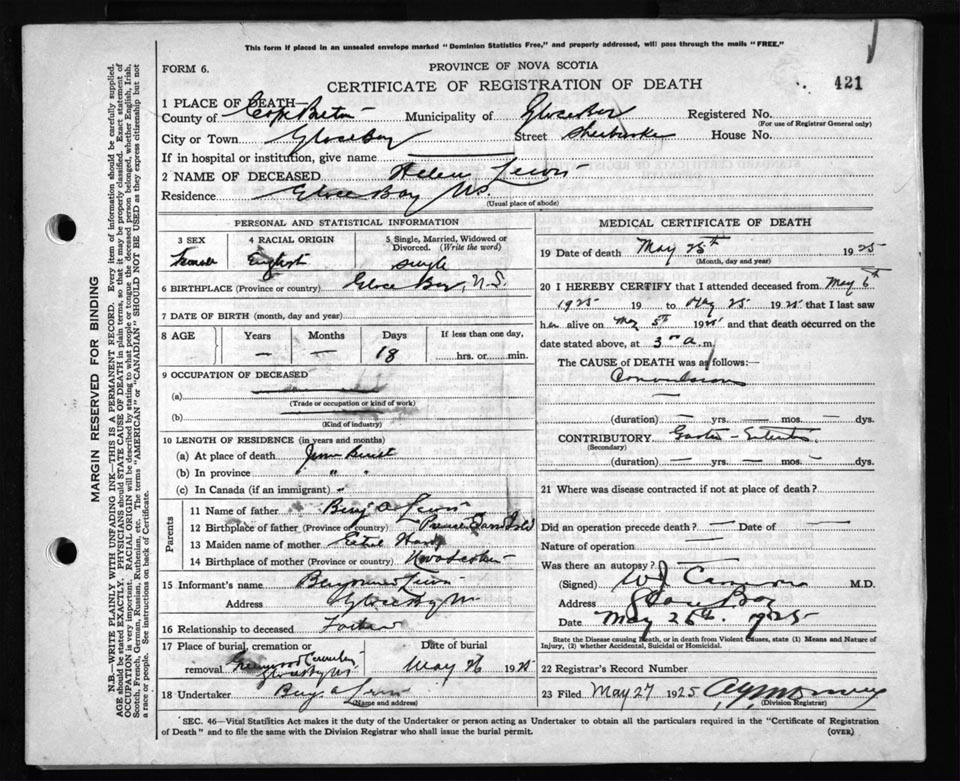 This form if placed in an unsealed envelope marked "Dominion Statistics Free," and properly addressed, will pass through the mails "FREE."
FORM 6.
PROVINCE OF NOVA SCOTIA
CERTIFICATE OF REGISTRATION OF DEATH
421
1 PLACE OF DEATH—
County of Cape Breton Municipality of Glace Bay Registered No.
(For use of Registrar General only)
City or Town Glace Bay Street Sherbrooke House No.
If in hospital or institution, give name
2 NAME OF DECEASED Helen Lewis
Residence Glace Bay NS.
(Usual place of abode)
PERSONAL AND STATISTICAL INFORMATION
3 SEX 4 RACIAL ORIGIN 5 Single, Married, Widowed or Divorced. (Write the word)
Female English Single
6 BIRTHPLACE (Province or country) Glace Bay, N.S.
7 DATE OF BIRTH (month, day and year)
8 AGE Years Months Days If less than one day,
— — 18 hrs. or min.
9 OCCUPATION OF DECEASED
(a)
(Trade or occupation or kind of work)
(b)
(Kind of industry)
10 LENGTH OF RESIDENCE (in years and months)
(a) At place of death
(b) In province " "
(c) In Canada (if an immigrant) "
Parents
11 Name of father Benj A Lewis
12 Birthplace of father (Province or country)
13 Maiden name of mother
14 Birthplace of mother (Province or country) Nova Scotia
15 Informant's name Lewis
Address Glace Bay NS
16 Relationship to deceased Father
17 Place of burial, cremation or removal Date of burial
Greenwood Cemetery Glace Bay NS May 26 1925
18 Undertaker Benj A Lewis
(Name and address)
MEDICAL CERTIFICATE OF DEATH
19 Date of death May 25th 1925
(Month, day and year)
20 I HEREBY CERTIFY that I attended deceased from May 6th
1925 19 to May 25 1925 that I last saw
her alive on May 5th 1925 and that death occurred on the
date stated above, at 3 a.m.
The CAUSE of DEATH was as follows:—
Convulsions
(duration) — yrs. — mos. — dys.
CONTRIBUTORY Gastro-Enteritis
(Secondary)
(duration) — yrs. — mos. — dys.
21 Where was disease contracted if not at place of death?
Did an operation precede death? — Date of —
Nature of operation —
Was there an autopsy?
(Signed) Cameron M.D.
Address Glace Bay
Date May 25th. 1925
State the Disease causing Death, or in death from Violent Causes, state (1) Means and Nature of Injury, (2) whether Accidental, Suicidal or Homicidal.
22 Registrar's Record Number
23 Filed May 27 1925
(Division Registrar)
SEC. 46—Vital Statistics Act makes it the duty of the Undertaker or person acting as Undertaker to obtain all the particulars required in the "Certificate of Registration
of Death" and to file the same with the Division Registrar who shall issue the burial permit.
(OVER)
MARGIN RESERVED FOR BINDING
N.B.—WRITE PLAINLY WITH UNFADING INK—THIS IS A PERMANENT RECORD. Every item of information should be carefully supplied.
AGE should be stated EXACTLY. PHYSICIANS should STATE CAUSE OF DEATH in plain terms, so that it may be properly classified. Exact statement of
OCCUPATION is very important. RACIAL ORIGIN will be described by stating to what people or tongue the deceased person belonged, whether English, Irish,
Scotch, French, German, Russian, Ruthenian, etc. The terms "AMERICAN" or "CANADIAN" SHOULD NOT BE USED as they express citizenship but not
a race or people. See instructions on back of Certificate.